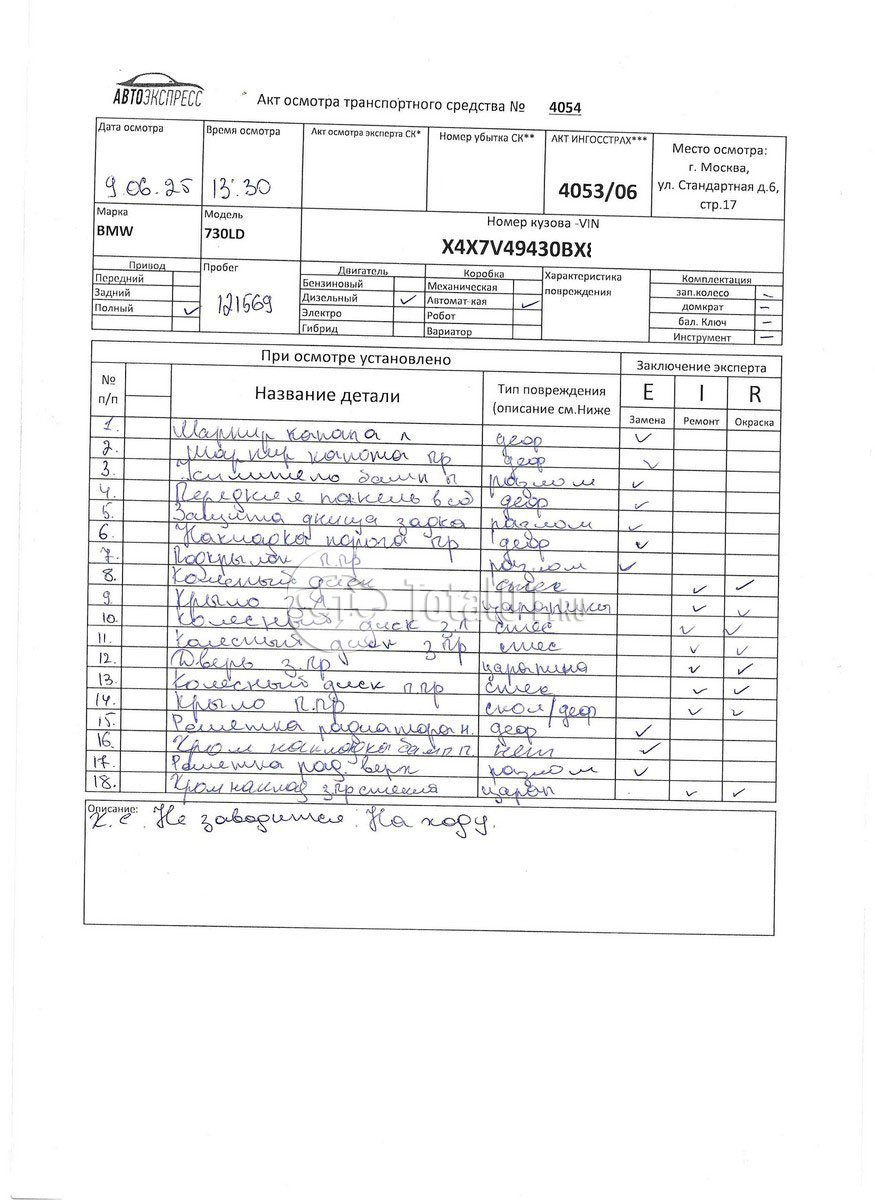 АВТОЭКСПРЕСС
Акт осмотра транспортного средства № 4054
Дата осмотра Время осмотра Акт осмотра эксперта СК* Номер убытка СК** АКТ ИНГОССТРАХ*** Место осмотра:
г. Москва,
ул. Стандартная д.6,
стр.17
9.06.25 13:30 4053/06
Марка Модель Номер кузова -VIN
BMW 730LD X4X7V49430BX
Привод Пробег Двигатель Коробка Характеристика повреждения Комплектация
Передний Бензиновый Механическая зап.колесо –
Задний Дизельный ✓ Автомат-кая ✓ домкрат –
Полный ✓ 121569 Электро Робот бал. Ключ –
Гибрид Вариатор Инструмент –
При осмотре установлено Заключение эксперта
№ п/п Название детали Тип повреждения (описание см.Ниже E I R
Замена Ремонт Окраска
1. капота л дефор ✓
2. Шарнир капота пр дефор ✓
3. разлом ✓
4. панель дефор ✓
5. Защита днища задка разлом ✓
6. Накладка порога пр дефор ✓
7. Подкрылок п.пр разлом ✓
8. Колесный диск ✓ ✓
9. Крыло царапины ✓ ✓
10. Колесный диск з.л ✓ ✓
11. Колесный диск з.пр ✓ ✓
12. Дверь з.пр царапина ✓ ✓
13. Колесный диск п.пр ✓ ✓
14. Крыло п.пр скол/дефор ✓ ✓
15. Решетка радиатора н. дефор ✓
16. Хром накладка бамп п. нет ✓
17. Решетка рад. верх разлом ✓
18. Хром наклад з.пр стекла царап ✓ ✓
Описание:
Х.С. Не заводится. На ходу.